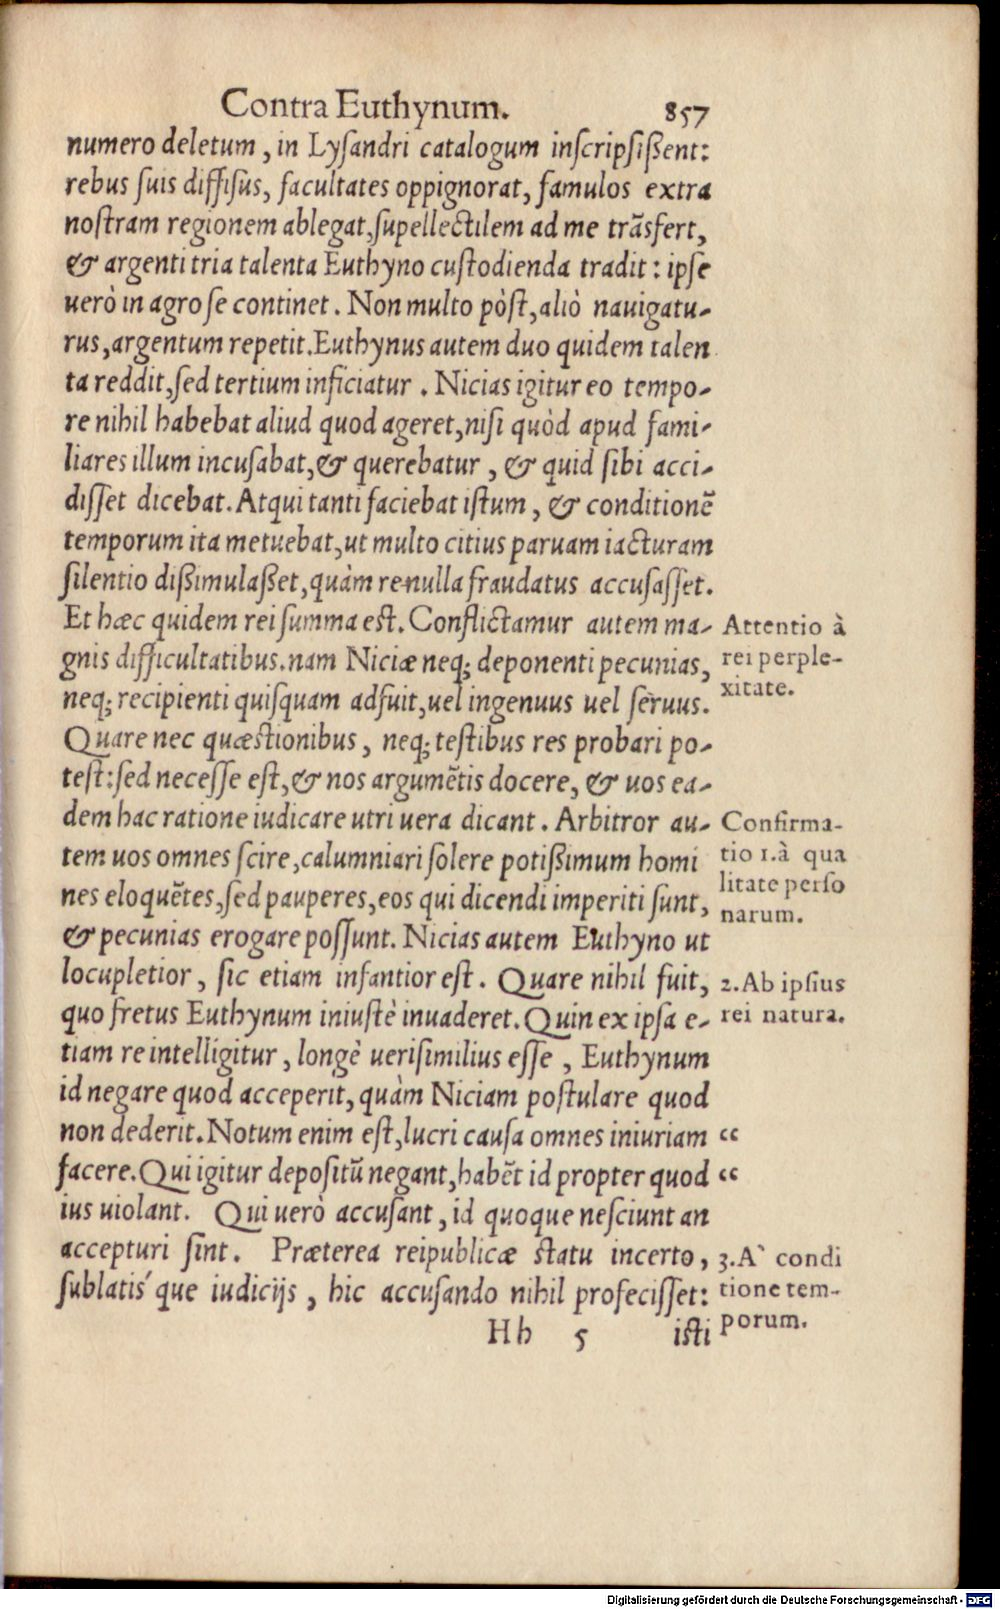 Contra Euthynum. 857
numero deletum, in Lyſandri catalogum inſcripſißent:
rebus ſuis diffiſus, facultates oppignorat, famulos extra
noſtram regionem ablegat, ſupellectilem ad me trãsfert,
& argenti tria talenta Euthyno cuſtodienda tradit: ipſe
uerò in agro ſe continet. Non multo pòſt, aliò nauigatu-
rus, argentum repetit. Euthynus autem duo quidem talen
ta reddit, ſed tertium inficiatur. Nicias igitur eo tempo-
re nihil habebat aliud quod ageret, niſi quòd apud fami-
liares illum incuſabat, & querebatur, & quid ſibi acci-
diſſet dicebat. Atqui tanti faciebat iſtum, & conditionẽ
temporum ita metuebat, ut multo citius paruam iacturam
ſilentio dißimulaßet, quàm re nulla fraudatus accuſaſſet.
Et hæc quidem rei ſumma eſt. Conflictamur autem ma-
gnis difficultatibus. nam Niciæ neq; deponenti pecunias,
neq; recipienti quiſquam adfuit, uel ingenuus uel ſeruus.
Quare nec quæſtionibus, neq; teſtibus res probari po-
teſt: ſed neceſſe eſt, & nos argumẽtis docere, & uos ea-
dem hac ratione iudicare utri uera dicant. Arbitror au-
tem uos omnes ſcire, calumniari ſolere potißimum homi
nes eloquẽtes, ſed pauperes, eos qui dicendi imperiti ſunt,
& pecunias erogare poſſunt. Nicias autem Euthyno ut
locupletior, ſic etiam infantior eſt. Quare nihil fuit,
quo fretus Euthynum iniuſtè inuaderet. Quin ex ipſa e-
tiam re intelligitur, longè ueriſimilius eſſe, Euthynum
id negare quod acceperit, quàm Niciam poſtulare quod
non dederit. Notum enim eſt, lucri cauſa omnes iniuriam “
facere. Qui igitur depoſitũ negant, habẽt id propter quod “
ius uiolant. Qui uerò accuſant, id quoque neſciunt an
accepturi ſint. Præterea reipublicæ ſtatu incerto,
ſublatiś que iudicijs, hic accuſando nihil profeciſſet:
Hh 5 iſti
Attentio à
rei perple-
xitate.
Confirma-
tio 1. à qua
litate perſo
narum.
2. Ab ipſius
rei natura.
3. A` condi
tione tem-
porum.
Digitalisierung gefördert durch die Deutsche Forschungsgemeinschaft - DFG